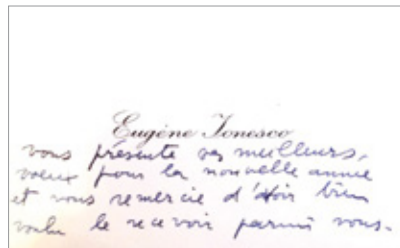 Eugène Ionesco
vous présente ses meilleurs
voeux pour la nouvelle année
et vous remercie d'avoir bien
voulu le recevoir parmi vous.